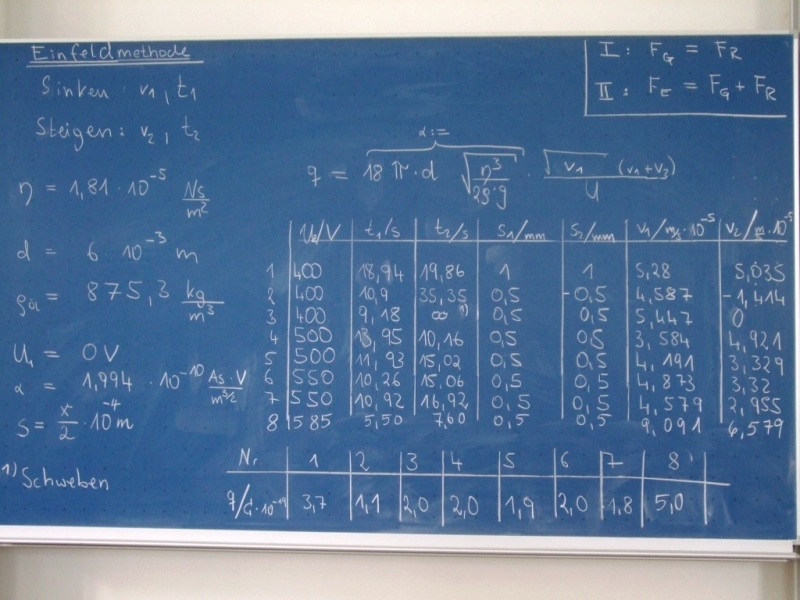 Einfeldmethode
Sinken: v₁, t₁
Steigen: v₂, t₂
η = 1,81 · 10⁻⁵ Ns/m²
d = 6 · 10⁻³ m
ρöl = 875,3 kg/m³
U₁ = 0V
α = 1,994 · 10⁻¹⁰ As·V/m³ᐟ²
S = x/2 · 10⁻⁴ m
¹⁾ Schweben
I: F_G = F_R
II: F_E = F_G + F_R
α:=
q = 18 π · d √(η³/2ρ·g) · √v₁ (v₁+v₂)/U
U₂/V t₁/s t₂/s S₁/mm S₂/mm v₁/m/s·10⁻⁵ v₂/m/s·10⁻⁵
1 400 18,94 19,86 1 1 5,28 5,035
2 400 10,9 35,35 0,5 -0,5 4,587 -1,414
3 400 9,18 ∞ ¹⁾ 0,5 0,5 5,447 0
4 500 13,95 10,16 0,5 0,5 3,584 4,921
5 500 11,93 15,02 0,5 0,5 4,191 3,329
6 550 10,26 15,06 0,5 0,5 4,873 3,32
7 550 10,92 16,92 0,5 0,5 4,579 2,955
8 585 5,50 7,60 0,5 0,5 9,091 6,579
Nr. 1 2 3 4 5 6 7 8
q/C·10⁻¹⁹ 3,7 1,1 2,0 2,0 1,9 2,0 1,8 5,0